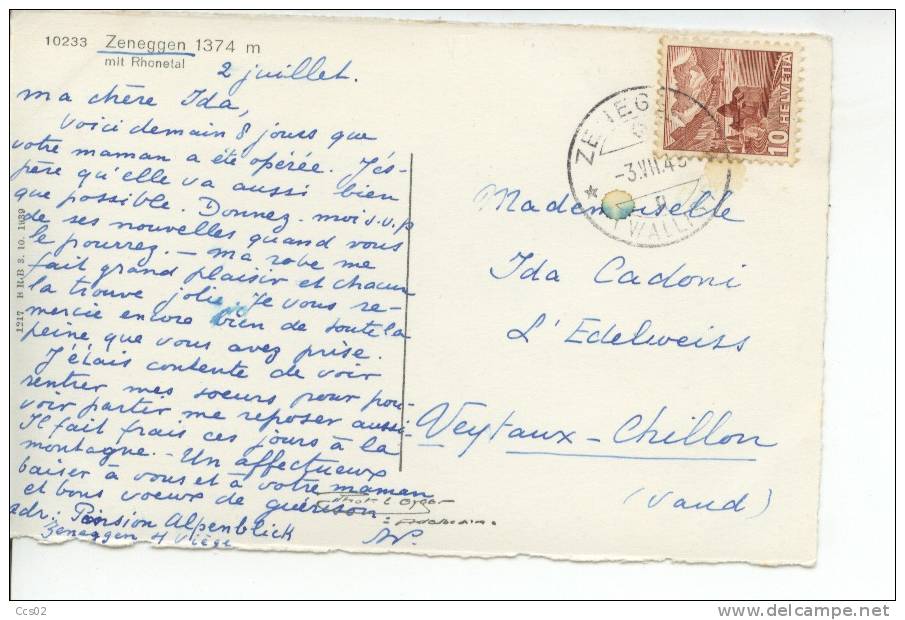 10233 Zeneggen 1374 m
mit Rhonetal
2 juillet.
Ma chère Ida,
Voici demain 8 jours que
votre maman a été opérée. J'es-
père qu'elle va aussi bien
que possible. Donnez-moi s.v.p
de ses nouvelles quand vous
le pourrez. — Ma robe me
fait grand plaisir et chacun
la trouve jolie. Je vous re-
mercie encore bien de toute la
peine que vous avez prise.
J'étais contente de voir
rentrer mes soeurs pour pou-
voir partir me reposer aussi.
Il fait frais ces jours à la
montagne. — Un affectueux
baiser à vous et à votre maman
et bons voeux de guérison
adr: Pension Alpenblick
Zeneggen s/ Viège
1217 B R B 3. 10. 1939
HELVETIA
10
-3.VII.4
(WALLIS)
Mademoiselle
Ida Cadoni
L'Edelweiss
Veytaux-Chillon
(Vaud)
Ccs02
www.delcampe.net